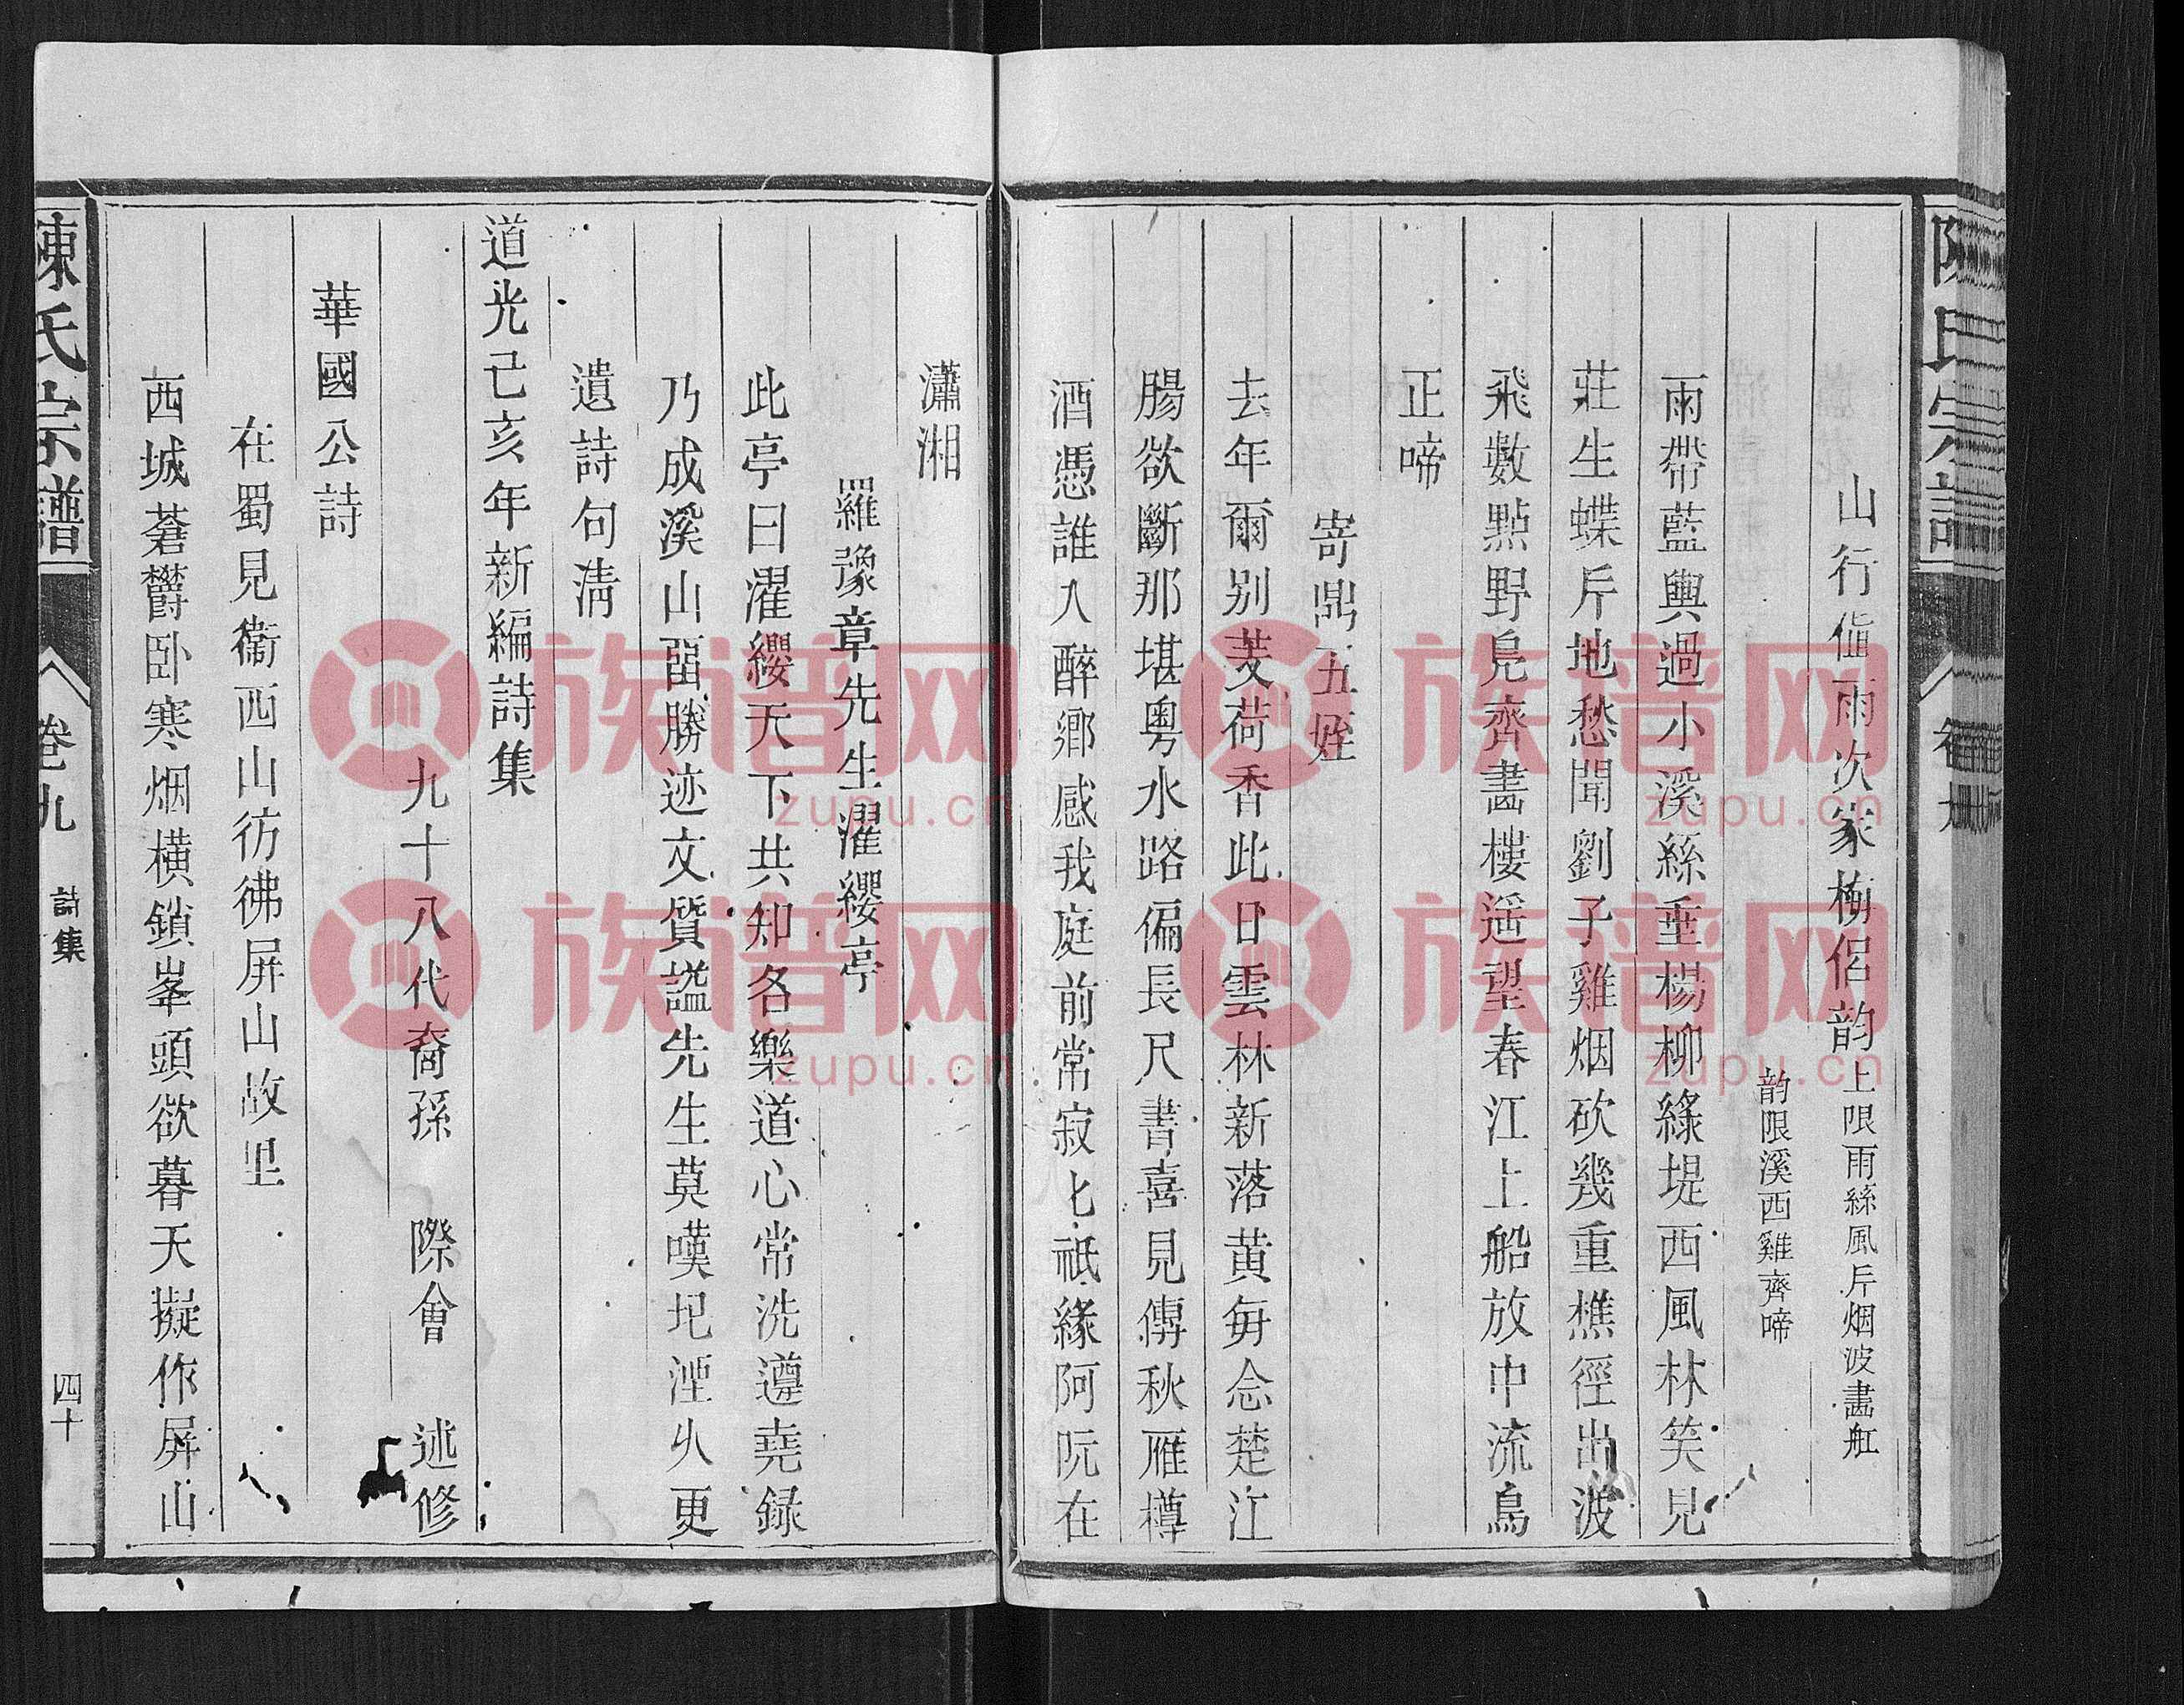 山行值雨次家梅侶韵上限雨絲風片烟波畵舡
韵限溪西雞齊啼
雨帶藍輿過小溪絲垂楊柳綠堤西風林笑見
莊生蝶片地愁聞劉子雞烟砍幾重樵徑出波
飛數點野鳧齊畵樓遥望春江上船放中流鳥
正啼
寄鼎五姪
去年爾别芰荷香此日雲林新落黄每念楚江
腸欲斷那堪粤水路偏長尺書喜見傳秋雁樽
酒憑誰人醉鄉感我庭前常寂匕祇緣阿阮在
瀟湘
羅豫章先生濯纓亭
此亭曰濯纓天下共知名樂道心常洗遵堯録
乃成溪山畱勝迹文質謚先生莫嘆圯湮久更
遺詩句淸
道光己亥年新編詩集
九十八代裔孫 際會 述修
華國公詩
在蜀見衞西山彷彿屏山故里
西城蒼欝卧寒烟橫鎖峯頭欲暮天擬作屏山
陳氏宗譜
卷九
詩集
四十
族谱网
zupu.cn
族谱网
zupu.cn
族谱网
zupu.cn
族谱网
zupu.cn